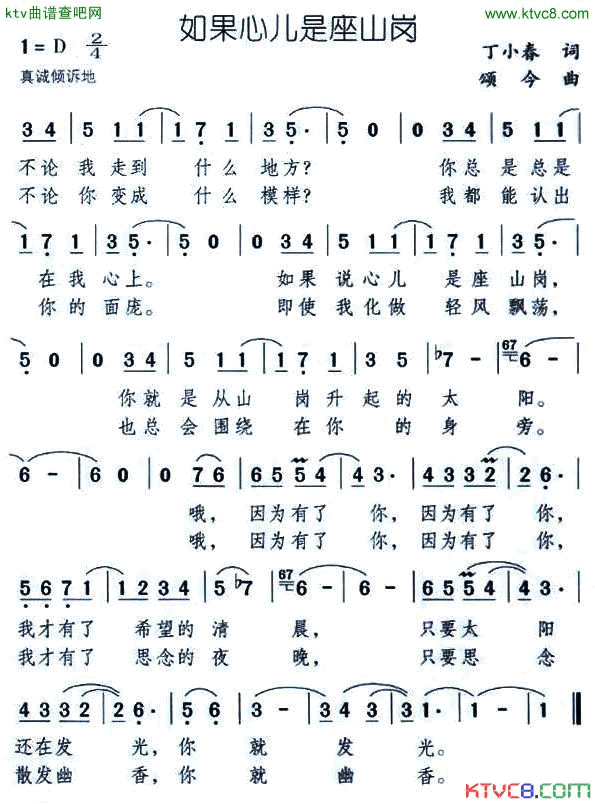 ktv曲谱查吧网
www.ktvc8.com
如果心儿是座山岗
1=D 2/4
丁小春 词
真诚倾诉地
颂 今 曲
3 4 | 5 1 1 | 1 7 1 | 3 5· | 5 0 | 0 3 4 | 5 1 1 |
不论 我走到 什么 地方? 你总 是总是
不论 你变成 什么 模样? 我都 能认出
1 7 1 | 3 5· | 5 0 | 0 3 4 | 5 1 1 | 1 7 1 | 3 5· |
在我 心上。 如果 说心儿 是座 山岗,
你的 面庞。 即使 我化做 轻风 飘荡,
5 0 | 0 3 4 | 5 1 1 | 1 7 1 | 3 5 | ♭7 - | 67 6 - |
你就 是从山 岗升 起的 太 阳。
也总 会围绕 在你 的身 旁。
6 - | 6 0 | 0 7 6 | 6 5 5 4 | 4 3· | 4 3 3 2 | 2 6· |
哦, 因为有了 你, 因为有了 你,
哦, 因为有了 你, 因为有了 你,
5 6 7 1 | 1 2 3 4 | 5 ♭7 | 67 6 - | 6 - | 6 5 5 4 | 4 3· |
我才有了 希望的 清 晨, 只要太 阳
我才有了 思念的 夜 晚, 只要思 念
4 3 3 2 | 2 6· | 5 6· | 3 - | 2 1 | 1 - | 1 - |
还在发 光, 你 就 发 光。
散发幽 香, 你 就 幽 香。
KTVC8.com